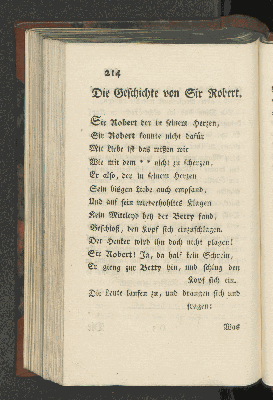 214
Die Geschichte von Sir Robert.
Sir Robert der in seinem Herzen,
Sir Robert konnte nicht dafür
Mit Liebe ist das wißen wir
Wie mit dem * * nicht zu scherzen,
Er also, der in seinem Herzen
Sein bisgen Liebe auch empfand,
Und auf sein wiederhohltes Klagen
Kein Mitleid bey der Betty fand,
Beschloß, den Kopf sich einzuschlagen.
Der Henker wird ihn doch nicht plagen!
Sir Robert! Ja, da half kein Schrein,
Er gieng zur Betty hin, und schlug den
Kopf sich ein.
Die Leute laufen zu, und drangen sich und
fragen:
Was